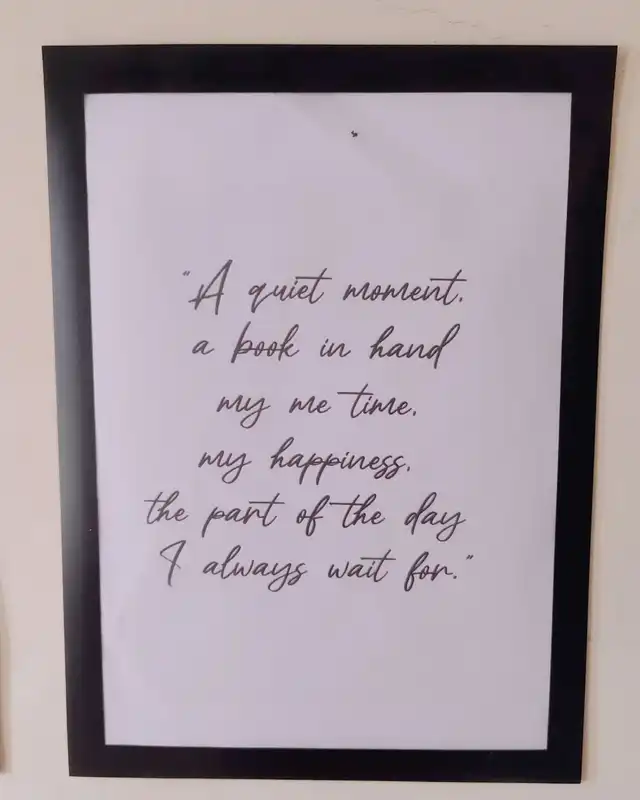 "A quiet moment,
a book in hand
my me time,
my happiness,
the part of the day
I always wait for."